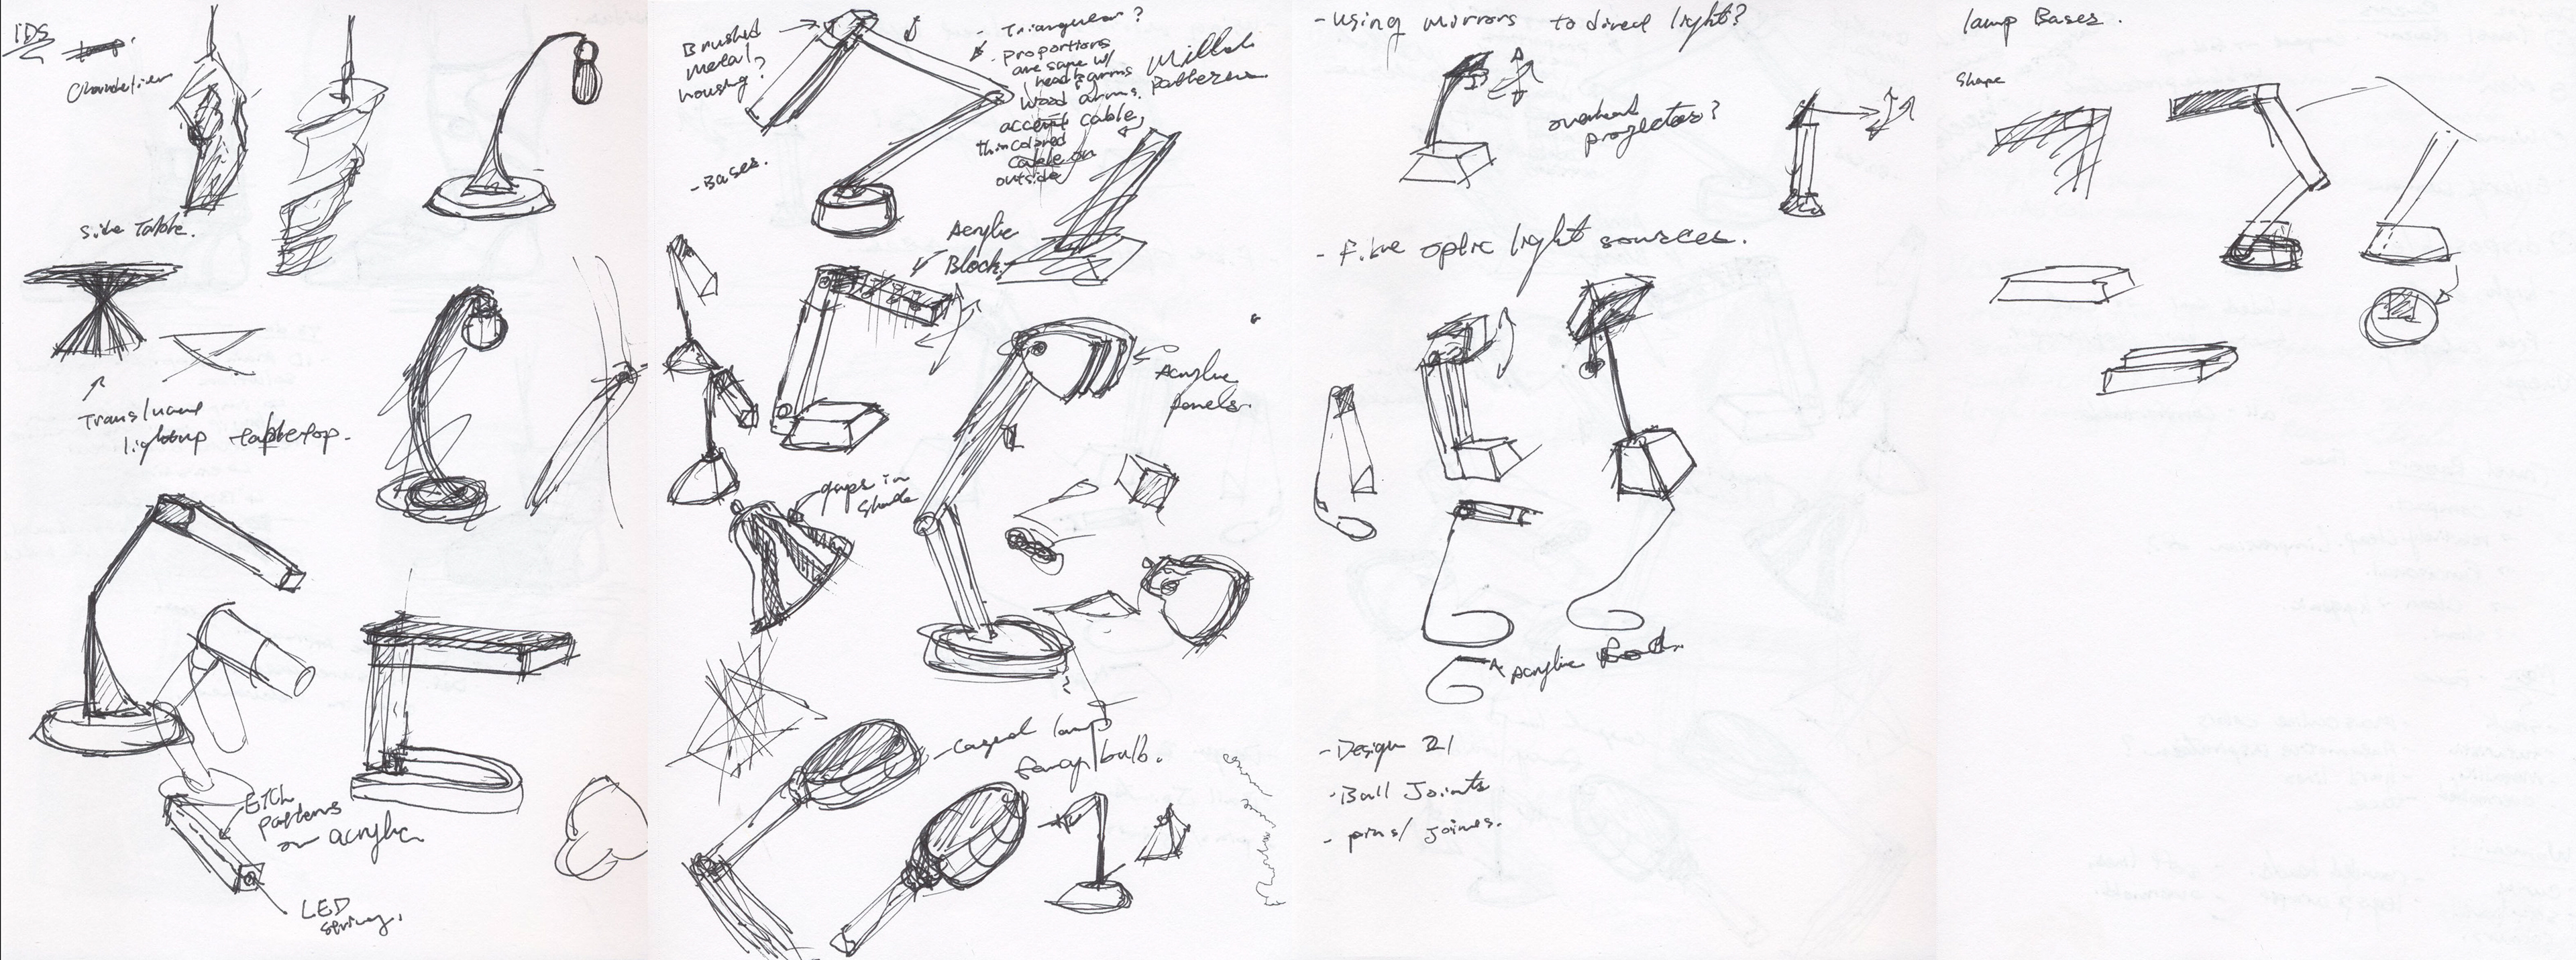 IDS
Chandelier
Side Table.
Translucent
lightup tabletop.
Etch
patterns
on acrylic
LED
string.
Brushed
metal
housing?
- Triangular?
- Proportions
are same w/
head & arms
Wood arms.
accent cable,
thin colored
cable on
outside
Milled
Patterns
- Bases.
Acrylic
Block
Acrylic
panels.
gaps in
shade
- Caged lamp
fancy bulb.
- Using mirrors to direct light?
overhead
projector?
- Fibre optic light sources.
Acrylic Rod.
- Design 21
- Ball Joints
- pins/ joints.
lamp Bases.
Shape